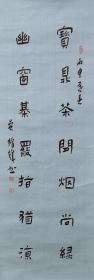 丙申
寶鼎茶閒烟尚綠
幽窗棊罷指猶涼